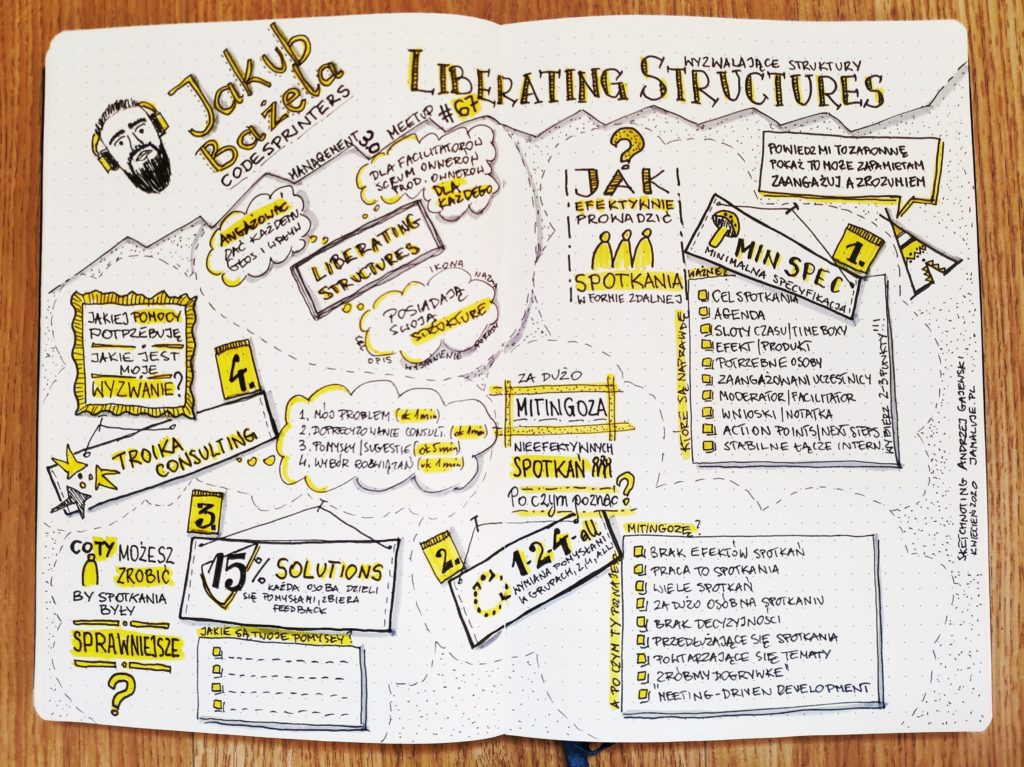 Jakub
Bażela
CODESPRINTERS
MANAGEMENT 3.0 MEETUP #67
LIBERATING STRUCTURES
WYZWALAJĄCE STRUKTURY
ANGAŻOWAĆ
DAĆ KAŻDEMU
GŁOS I WPŁYW
DLA FACILITATORÓW
SCRUM OWNERÓW
PROD. OWNERÓW
DLA
KAŻDEGO
LIBERATING
STRUCTURES
POSIADAJĄ
SWOJĄ
STRUKTURĘ
IKONA
NAZWA
CEL
OPIS
PORADY
JAK
EFEKTYWNIE
PROWADZIĆ
SPOTKANIA
W FORMIE ZDALNEJ
?
POWIEDZ MI TO ZAPOMNĘ
POKAŻ TO MOŻE ZAPAMIĘTAM
ZAANGAŻUJ A ZROZUMIEM
1.
MIN SPEC
MINIMALNA SPECYFIKACJA
KTÓRE SĄ NAPRAWDĘ
WAŻNE?
CEL SPOTKANIA
AGENDA
SLOTY CZASU/TIMEBOXY
EFEKT/PRODUKT
POTRZEBNE OSOBY
ZAANGAŻOWANI UCZESTNICY
MODERATOR/FACILITATOR
WNIOSKI/NOTATKA
ACTION POINTS/NEXT STEPS
STABILNE ŁĄCZE INTERN.
WYBIERZ 2-3 PUNKTY!!!
ZA DUŻO
MITINGOZA
NIEEFEKTYWNYCH
SPOTKAŃ
Po czym poznać?
2.
1-2-4-all
WYMIANA POMYSŁAMI
W GRUPACH, 2, 4, ALL
A PO CZYM TY POZNAJESZ
MITINGOZĘ?
BRAK EFEKTÓW SPOTKAŃ
PRACA TO SPOTKANIA
WIELE SPOTKAŃ
ZA DUŻO OSÓB NA SPOTKANIU
BRAK DECYZYJNOŚCI
PRZEDŁUŻAJĄCE SIĘ SPOTKANIA
POWTARZAJĄCE SIĘ TEMATY
"ZRÓBMY DOGRYWKĘ"
"MEETING-DRIVEN DEVELOPMENT
3.
15% SOLUTIONS
KAŻDA OSOBA DZIELI
SIĘ POMYSŁAMI, ZBIERA
FEEDBACK
CO TY MOŻESZ
ZROBIĆ
BY SPOTKANIA
BYŁY
SPRAWNIEJSZE
?
JAKIE SĄ TWOJE POMYSŁY?
4.
TROIKA
CONSULTING
JAKIEJ POMOCY
POTRZEBUJĘ
JAKIE JEST
MOJE
WYZWANIE?
1. MÓJ PROBLEM (ok 1 min)
2. DOPRECYZOWANIE CONSULT. (ok 1 min)
3. POMYSŁY/SUGESTIE (ok 5 min)
4. WYBÓR ROZWIĄZAŃ (ok 1 min)
SKETCHNOTING ANDRZEJ GAJEWSKI
KWIECIEŃ 2020 JAMALUJE.PL